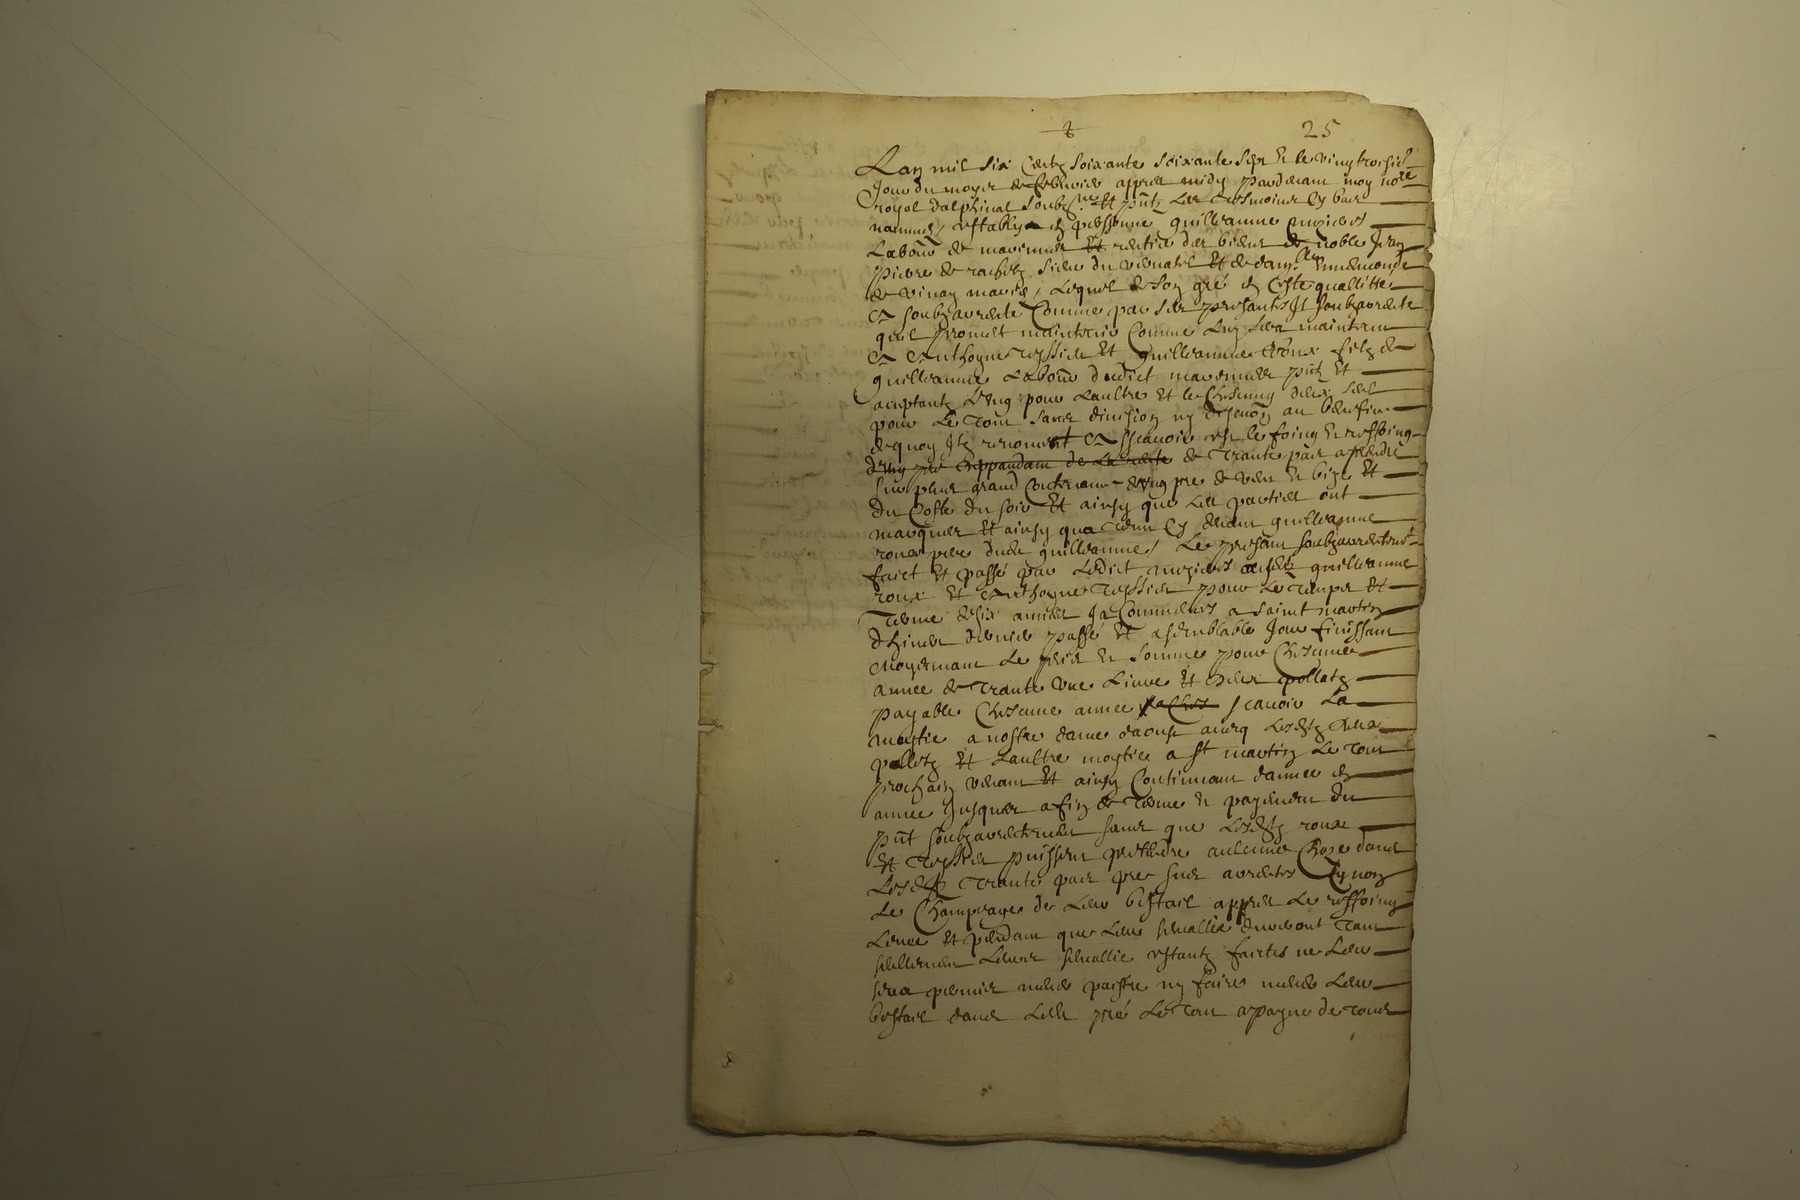 25
Lan mil six centz soixante soixante sept & le vingtroisie
Jour du moys de febvrier appres midy pardevant moy no.re
royal dalphinal soubz.ne et pñtz les tesmoins cy bas
nommes, estably en personne guilleaume
Labour de mavennes et rentier des biens de noble Jean
pierre de rachetz sieur du et de dam.lle Ennemonde
de vinay maries, lequel de son gré en ceste quallitte
a soubzarrente comme par ses presantes Il soubzarrente
quil promet maintenir comme luy sera maintenu
a Anthoyne Teyssier et guilleaume roux filz de
guilleaume Labour dudict pñtz et
aceptantz lung pour laultre et le chescung deux seul
pour le tout sans division ny discution au beneffice
de quoy Ilz renoncent a scavoir est le foing & reffoing
de trante pas a prendre
sur plus grand contenant dung pre de vers & bize et
du coste du soir et ainsy que les parties ont
marques et ainsy qua tenu cy devant guilleaume
roux pere dudt guilleaume, le presant soubzarrentemt
faict et passé par ledict ausdtz guilleaume
roux et Anthoyne Teyssier pour le temps et
terme de six annees Ja commences a saint martin
dhiver dernier passé et a semblable Jour finissant
moyennant le pris & somme pour chescune
annee de trante une livre et deux pollatz
payable chescune annee scavoir la
moytie a nostre dame daoust avecq lesdtz deux
polletz et laultre moytie a st martin le tout
prochain venant et ainsy continuant dannee en
annee Jusques a fin de terme & payement du
pñt soubzarrentement sans que lesdtz roux
et Teyssier puissent prethendre aulcune choze dans
lesdtz trante pas pre sus arrentes synon
le champeage de leur bestail appres le reffoing
leves et pendant que leur dureront tant
sullement leurs estantz faictes ne leur
sera permis mener paistre ny faire mener leur
bestail dans ledt pré le tout a payne de tous